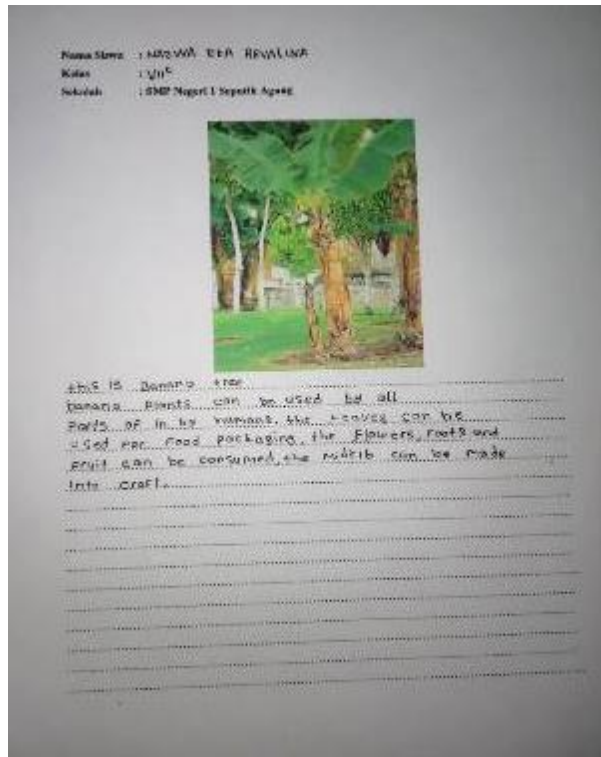 Nama Siswa : NADWA REA REVALINA
Kelas : VII
Sekolah : SMP Negeri 1 Seputih Agung
this is Banana tree
banana plants can be used by all
parts of in by humans, the leaves can be
used for food packaging, the flowers, roots and
fruit can be consumed, the midrib can be made
into craft.